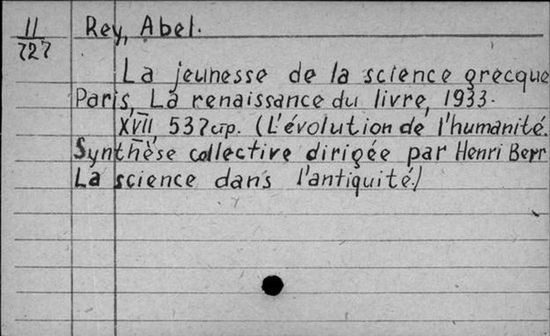 II
727
Rey, Abel.
La jeunesse de la science grecque
Paris, La renaissance du livre, 1933.
XVII, 537 стр. (L'évolution de l'humanité.
Synthèse collective dirigée par Henri Berr
La science dans l'antiquité.)